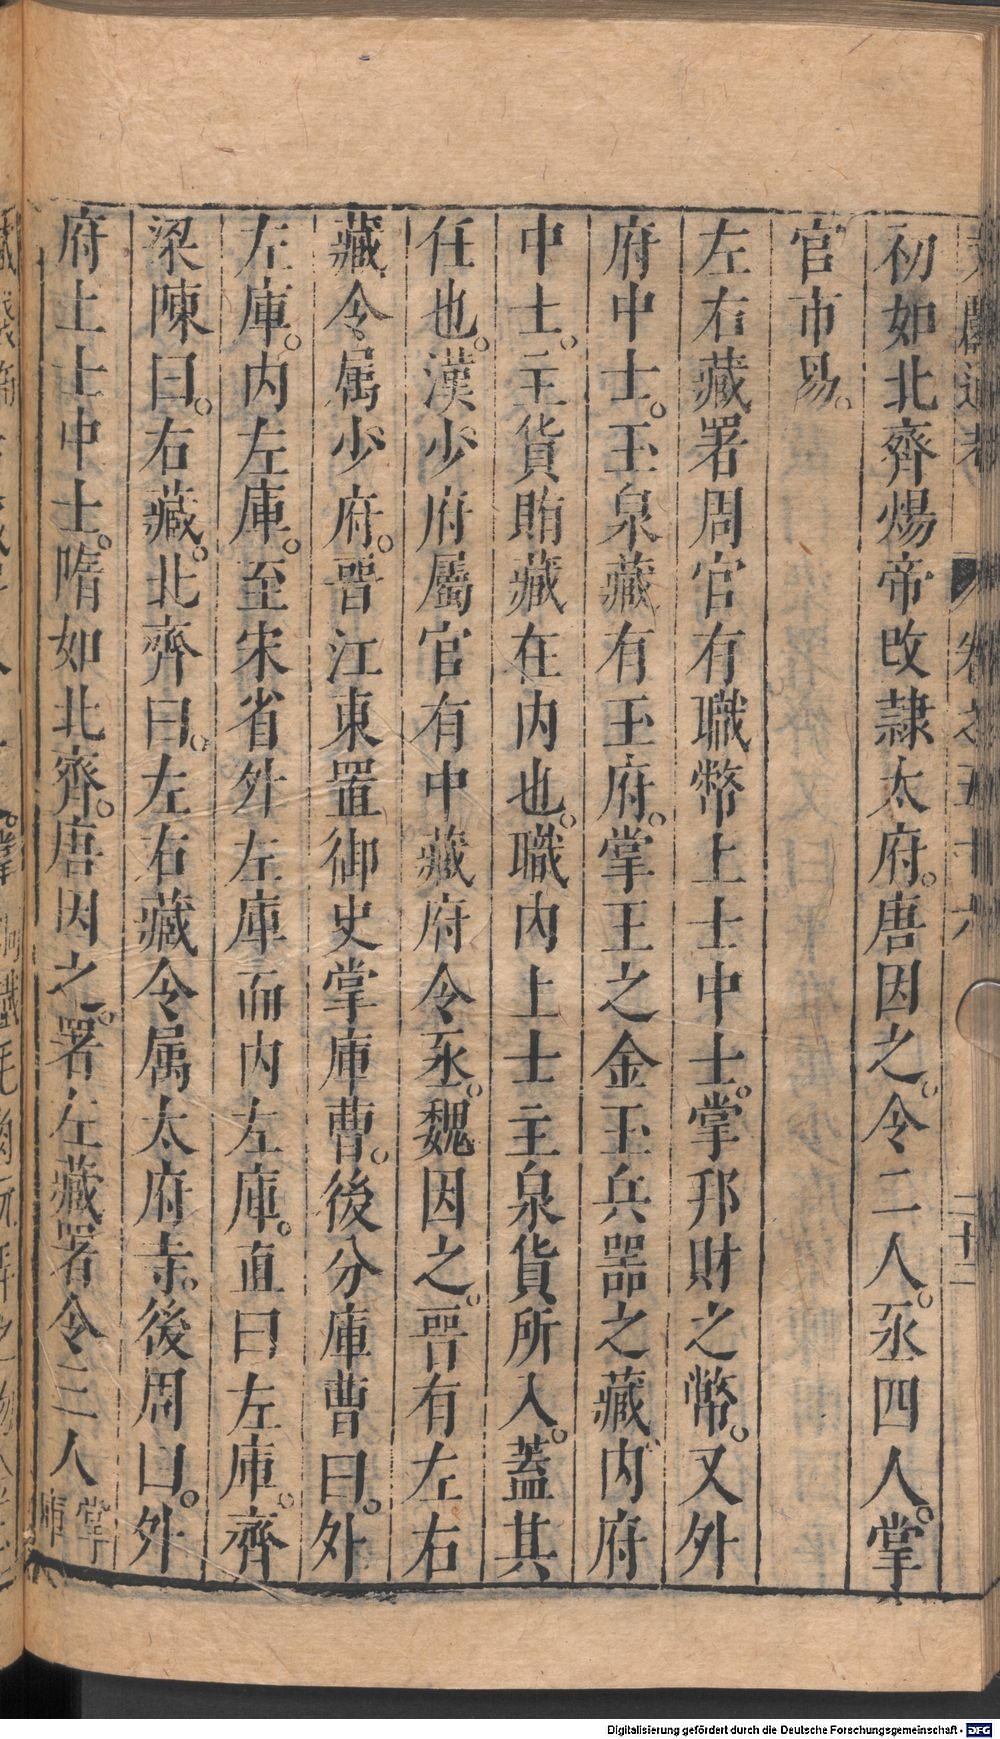 文獻通考 卷之五十六 二十二
初如北齊煬帝改隷太府。唐因之。令二人。丞四人。掌
官市易。
左右藏署周官有職幣上士中士。掌邦財之幣。又外
府中士。玉泉藏有玉府。掌王之金玉兵器之藏内府
中士。主貨賄藏在内也。職内上士主泉貨所入。蓋其
任也。漢少府屬官有中藏府令丞。魏因之。晋有左右
藏令属少府。晋江東置御史掌庫曹。後分庫曹曰。外
左庫。内左庫。至宋省外左庫而内左庫。直曰左庫。齊
梁陳曰。右藏。北齊曰。左右藏令属太府寺。後周曰。外
府上士中士。隋如北齊。唐因之。署左藏署令三人 掌
Digitalisierung gefördert durch die Deutsche Forschungsgemeinschaft - DFG